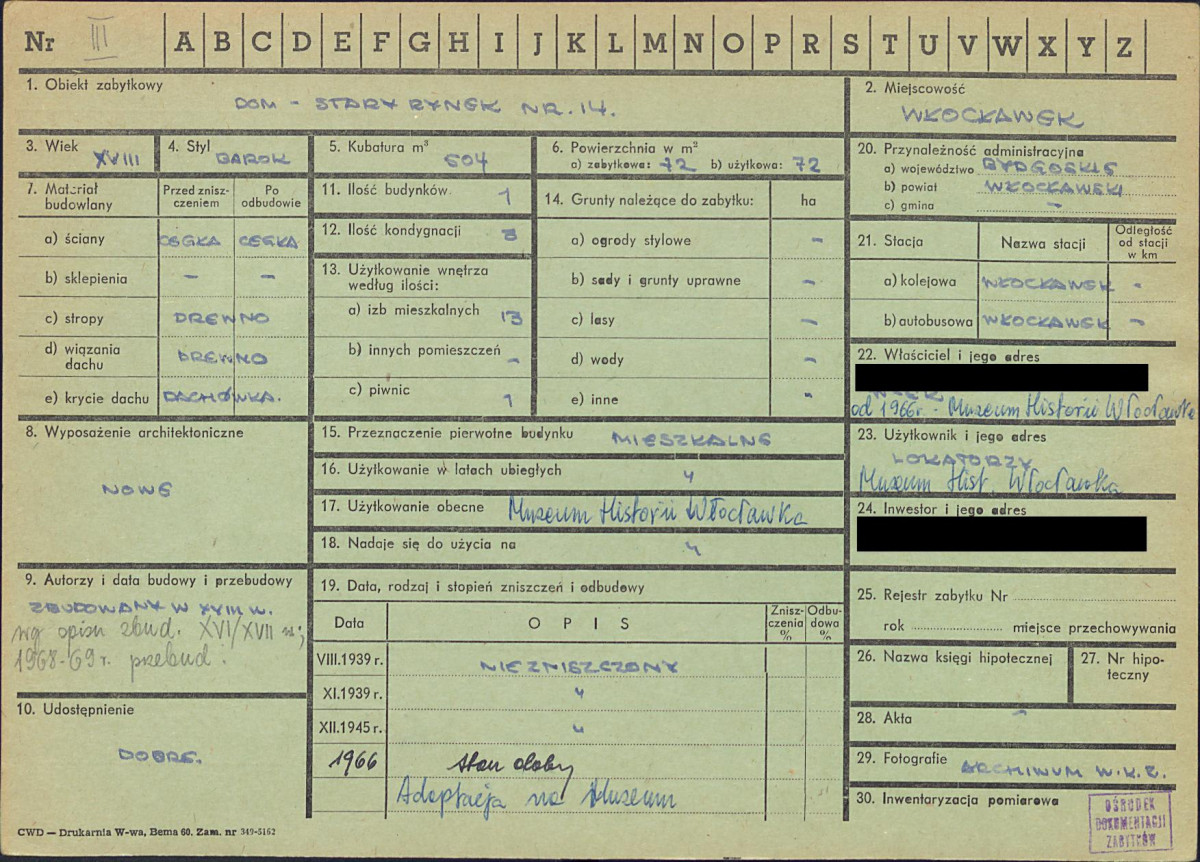 Nr III A B C D E F G H I J K L M N O P R S T U V W X Y Z
1. Obiekt zabytkowy
DOM - STARY RYNEK NR. 14.
2. Miejscowość
WŁOCŁAWEK
3. Wiek XVIII
4. Styl BAROK
5. Kubatura m³ 604
6. Powierzchnia w m²
a) zabytkowa: 72 b) użytkowa: 72
7. Materiał budowlany
Przed zniszczeniem
Po odbudowie
a) ściany CEGŁA CEGŁA
b) sklepienia - -
c) stropy DREWNO
d) wiązania dachu DREWNO
e) krycie dachu DACHÓWKA.
8. Wyposażenie architektoniczne
NOWE
9. Autorzy i data budowy i przebudowy
ZBUDOWANY W XVIII W.
wg opisu zbud. XVI/XVII w;
1968-69 r. przebud.
10. Udostępnienie
DOBRE.
11. Ilość budynków 1
12. Ilość kondygnacji 3
13. Użytkowanie wnętrza
według ilości:
a) izb mieszkalnych 13
b) innych pomieszczeń -
c) piwnic 1
14. Grunty należące do zabytku: ha
a) ogrody stylowe -
b) sady i grunty uprawne -
c) lasy -
d) wody -
e) inne -
15. Przeznaczenie pierwotne budynku MIESZKALNE
16. Użytkowanie w latach ubiegłych "
17. Użytkowanie obecne Muzeum Historii Włocławka
18. Nadaje się do użycia na "
19. Data, rodzaj i stopień zniszczeń i odbudowy
Data OPIS Zniszczenia % Odbudowa %
VIII.1939 r. NIEZNISZCZONY
XI.1939 r. "
XII.1945 r. "
1966 stan dobry
Adaptacja na Muzeum
20. Przynależność administracyjna
a) województwo BYDGOSKIE
b) powiat WŁOCŁAWSKI
c) gmina -
21. Stacja Nazwa stacji Odległość od stacji w km
a) kolejowa WŁOCŁAWEK -
b) autobusowa WŁOCŁAWEK -
22. Właściciel i jego adres
od 1966r. - Muzeum Historii Włocławka
23. Użytkownik i jego adres
LOKATORZY
Muzeum Hist. Włocławka
24. Inwestor i jego adres
25. Rejestr zabytku Nr
rok miejsce przechowywania
26. Nazwa księgi hipotecznej
27. Nr hipoteczny
28. Akta -
29. Fotografie ARCHIWUM W.K.Z.
30. Inwentaryzacja pomiarowa
OŚRODEK
DOKUMENTACJI
ZABYTKÓW
CWD — Drukarnia W-wa, Bema 60. Zam. nr 349-5162